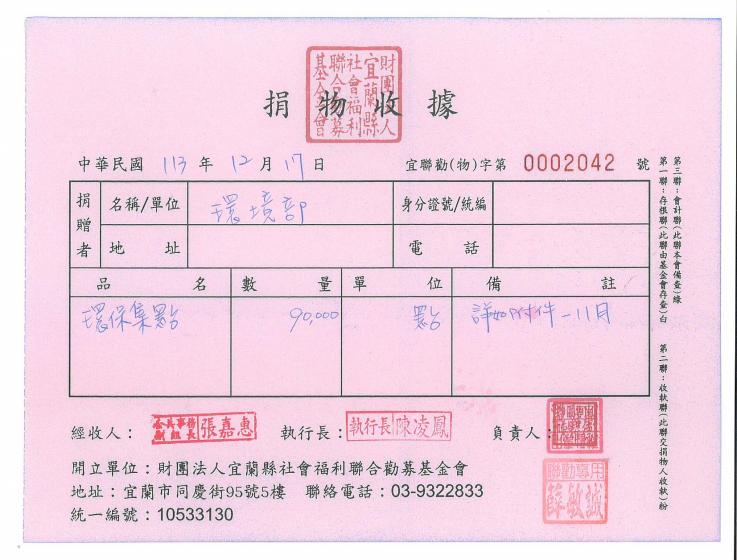 財團法人
宜蘭縣
社會福利
聯合勸募
基金會
捐物收據
中華民國 113 年 12 月 17 日
宜聯勸(物)字第 0002042 號
捐贈者
名稱/單位 環境部 身分證號/統編
地址 電話
品名 數量 單位 備註
環保集點 90,000 點 詳如附件-11月
第一聯：存根聯(此聯由基金會存查)白
第二聯：收執聯(此聯交捐物人收執)粉
第三聯：會計聯(此聯本會備查)綠
經收人： 會兵事務副組長 張嘉惠 執行長： 執行長陳凌鳳 負責人：
聯勸專用
薛敏誠
開立單位：財團法人宜蘭縣社會福利聯合勸募基金會
地址：宜蘭市同慶街95號5樓 聯絡電話：03-9322833
統一編號：10533130